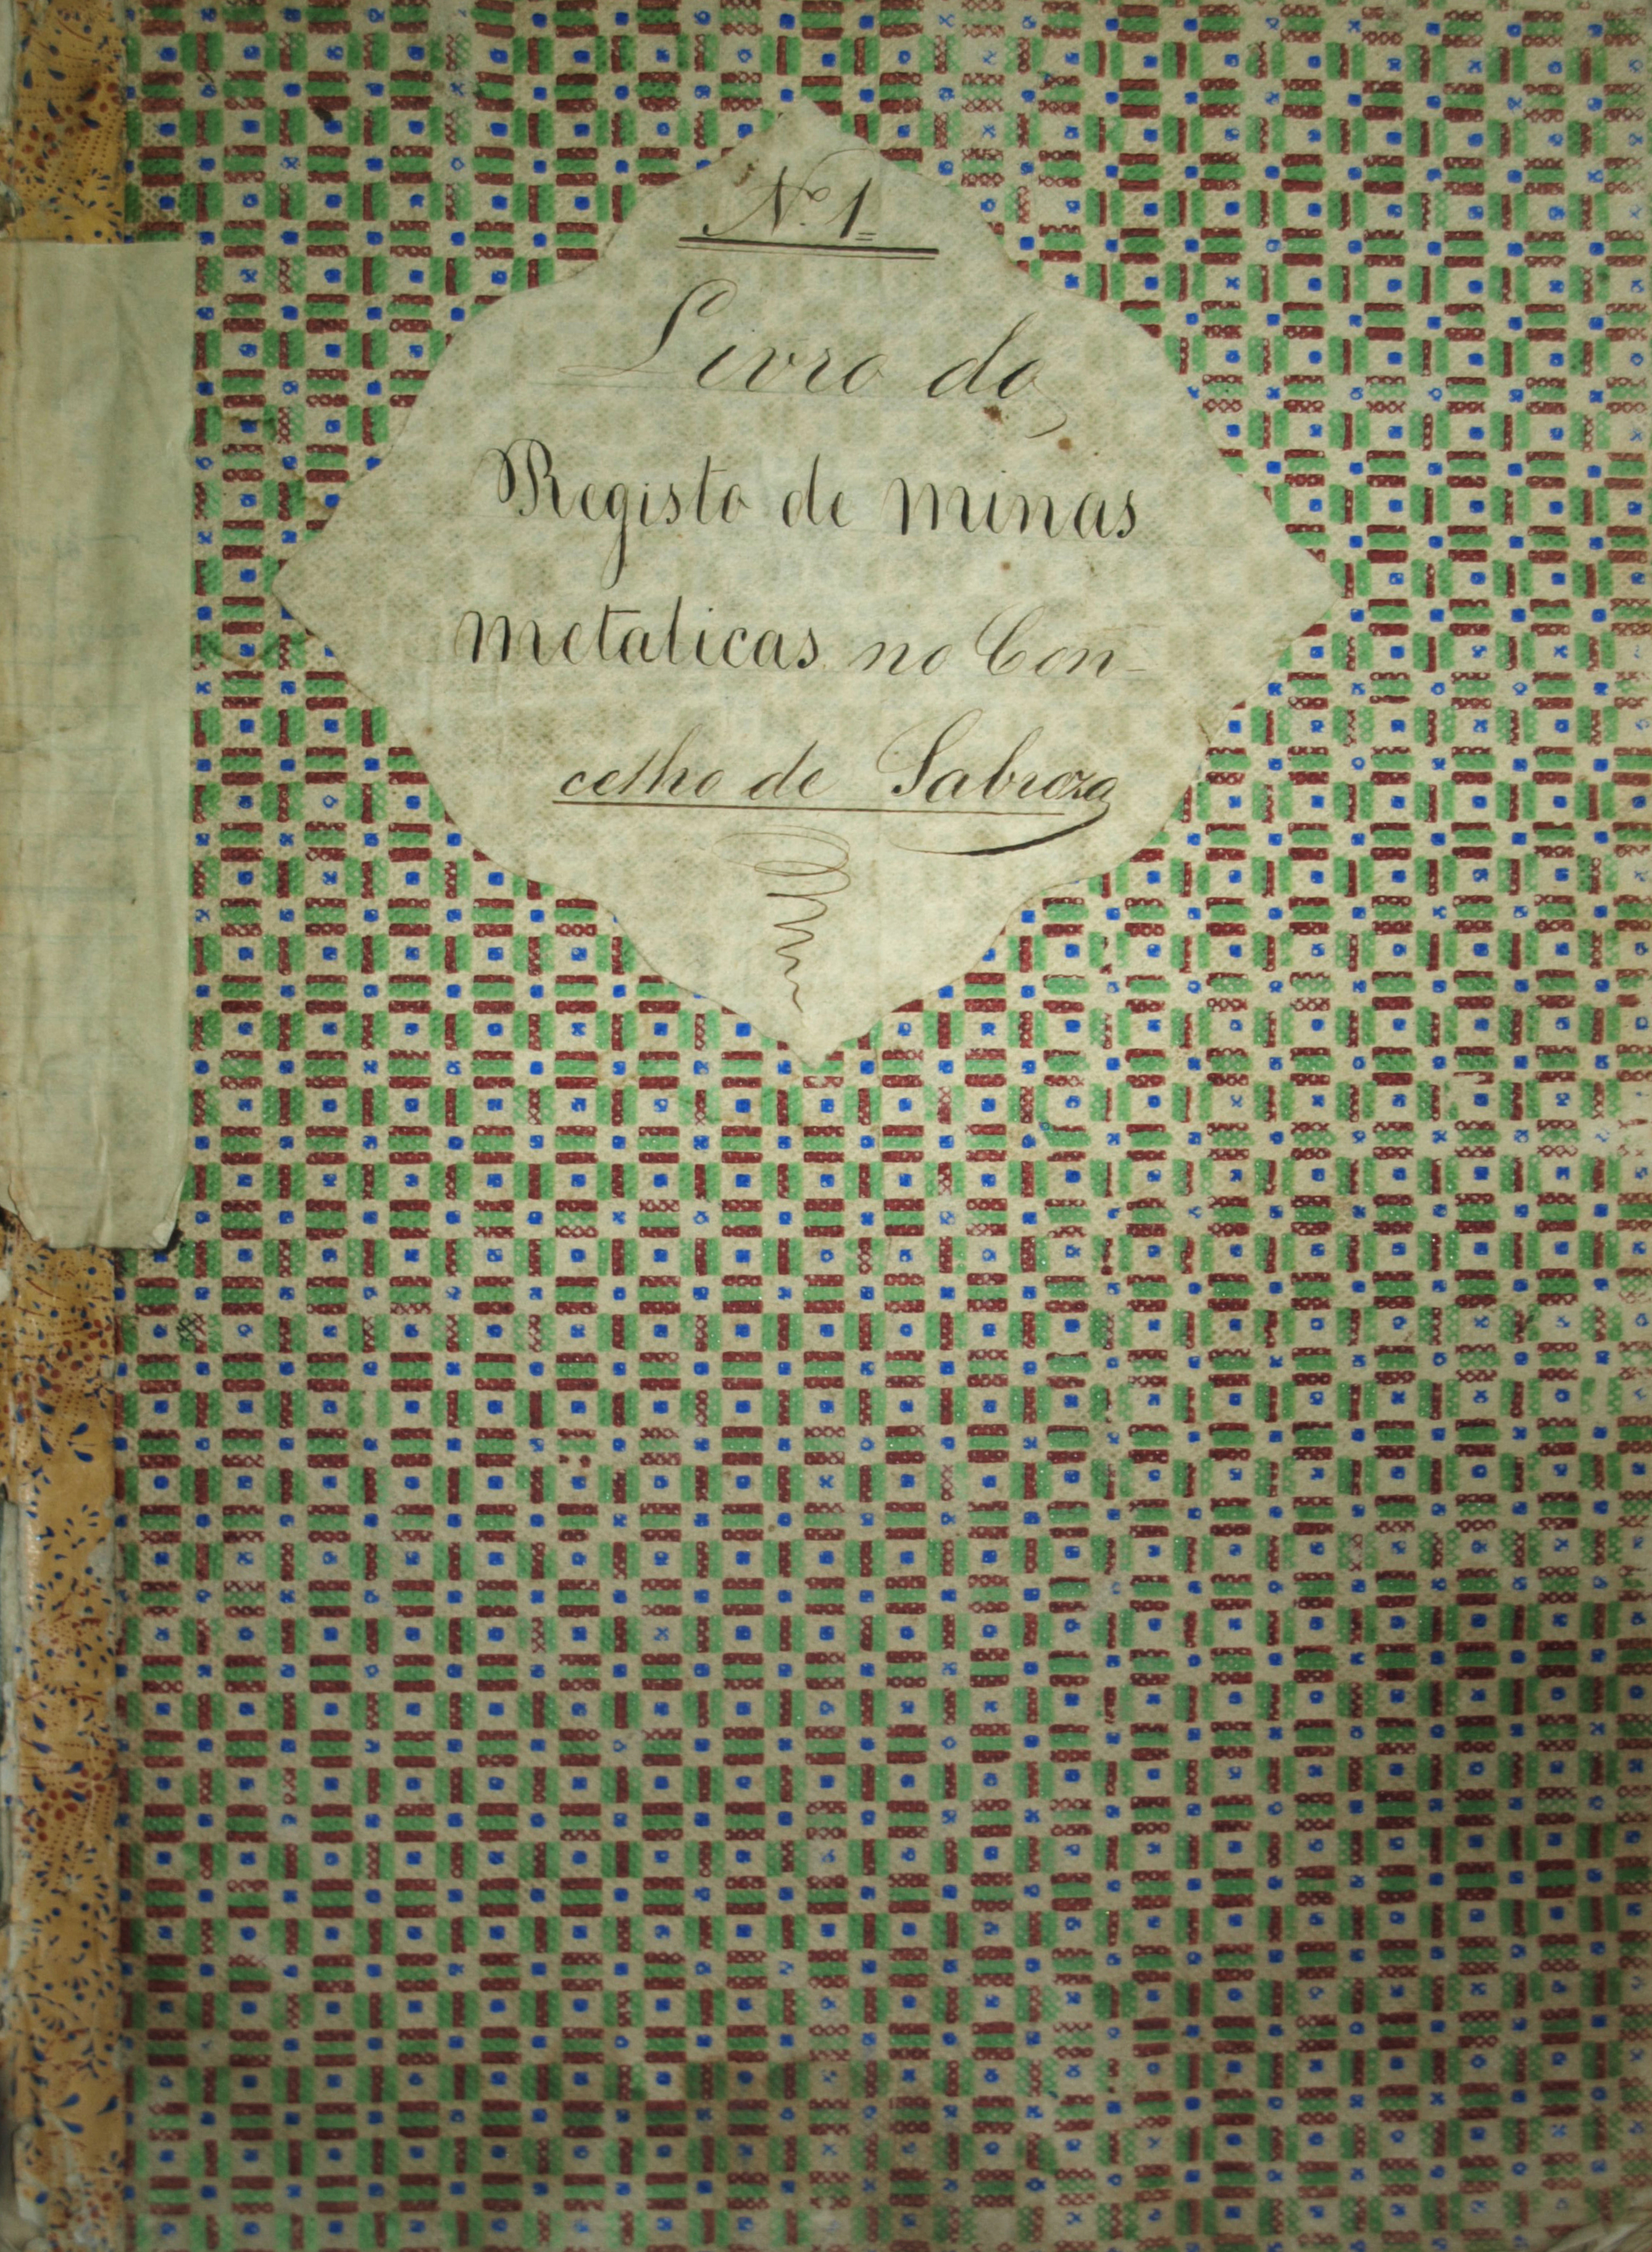 Nº 1
Livro do
Registo de minas
metalicas no Con-
celho de Sabroza